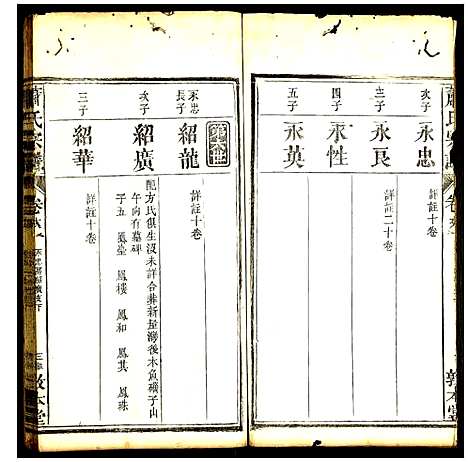 次子
永忠
詳註十卷
三子
永良
詳註二十卷
四子
永性
五子
永英
永忠長子
紹龍
詳註十卷
次子
紹廣
配方氏俱生沒未詳合葬新垦灣後木魚磺子山
午向有墓碑
子五 鳳堂 鳳樓 鳳和 鳳其 鳳珠
三子
紹華
詳註十卷
蕭氏宗譜
卷
敦本堂
蕭氏宗譜
卷
敦本堂